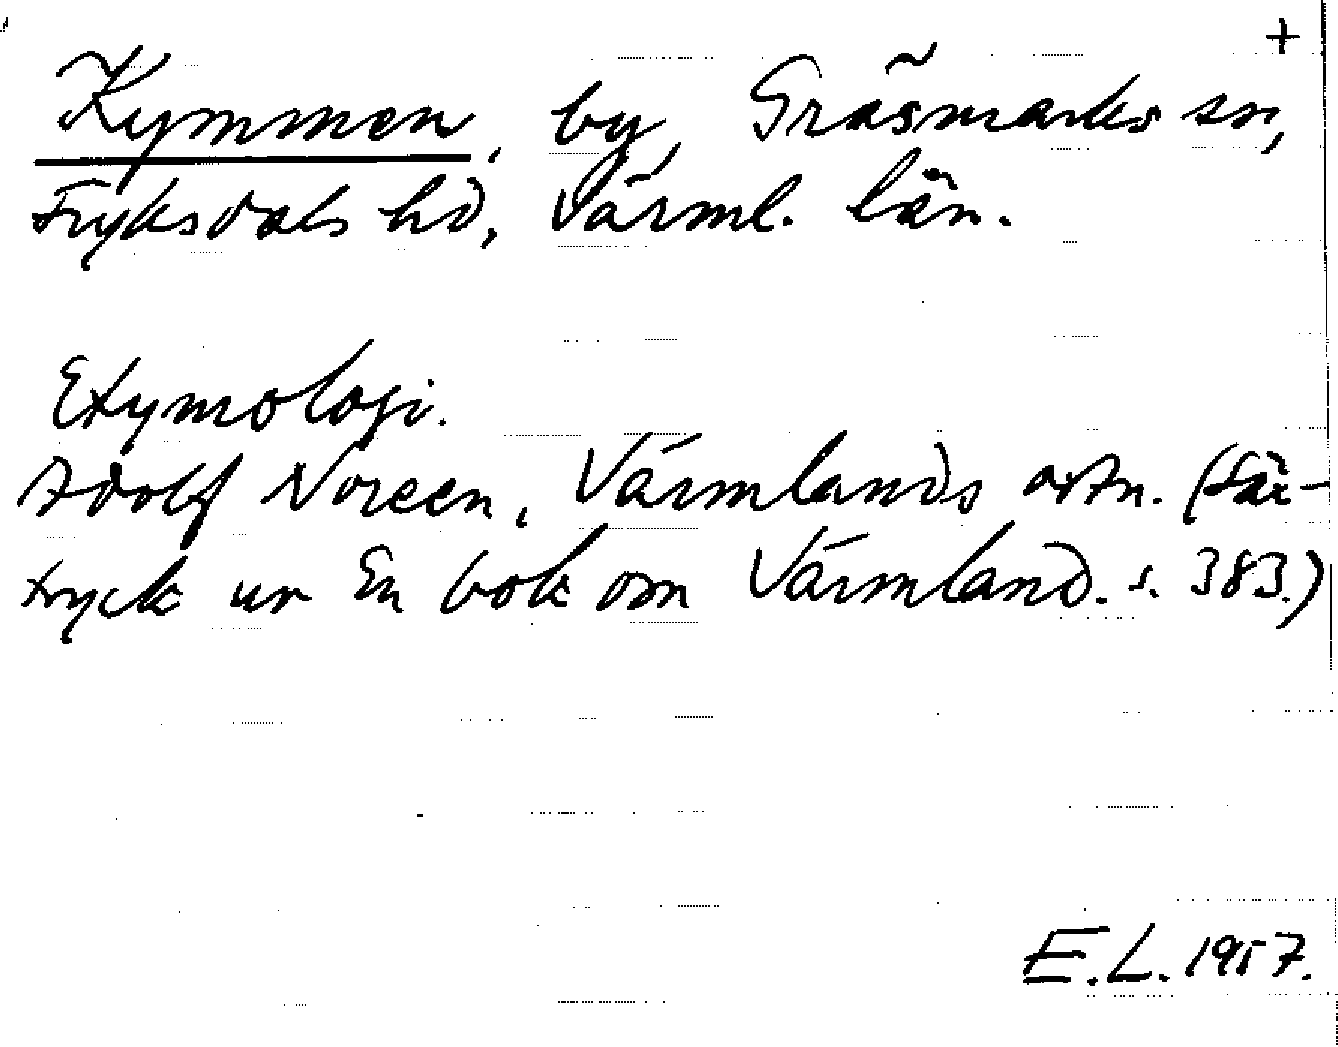 +
Kymmen, by, Gräsmarks sn,
Fryksdals hd, Värml. län.
Etymologi.
Adolf Noreen, Värmlands ortn. (Sär-
tryck ur En bok om Värmland. s. 383.)
E.L. 1957.